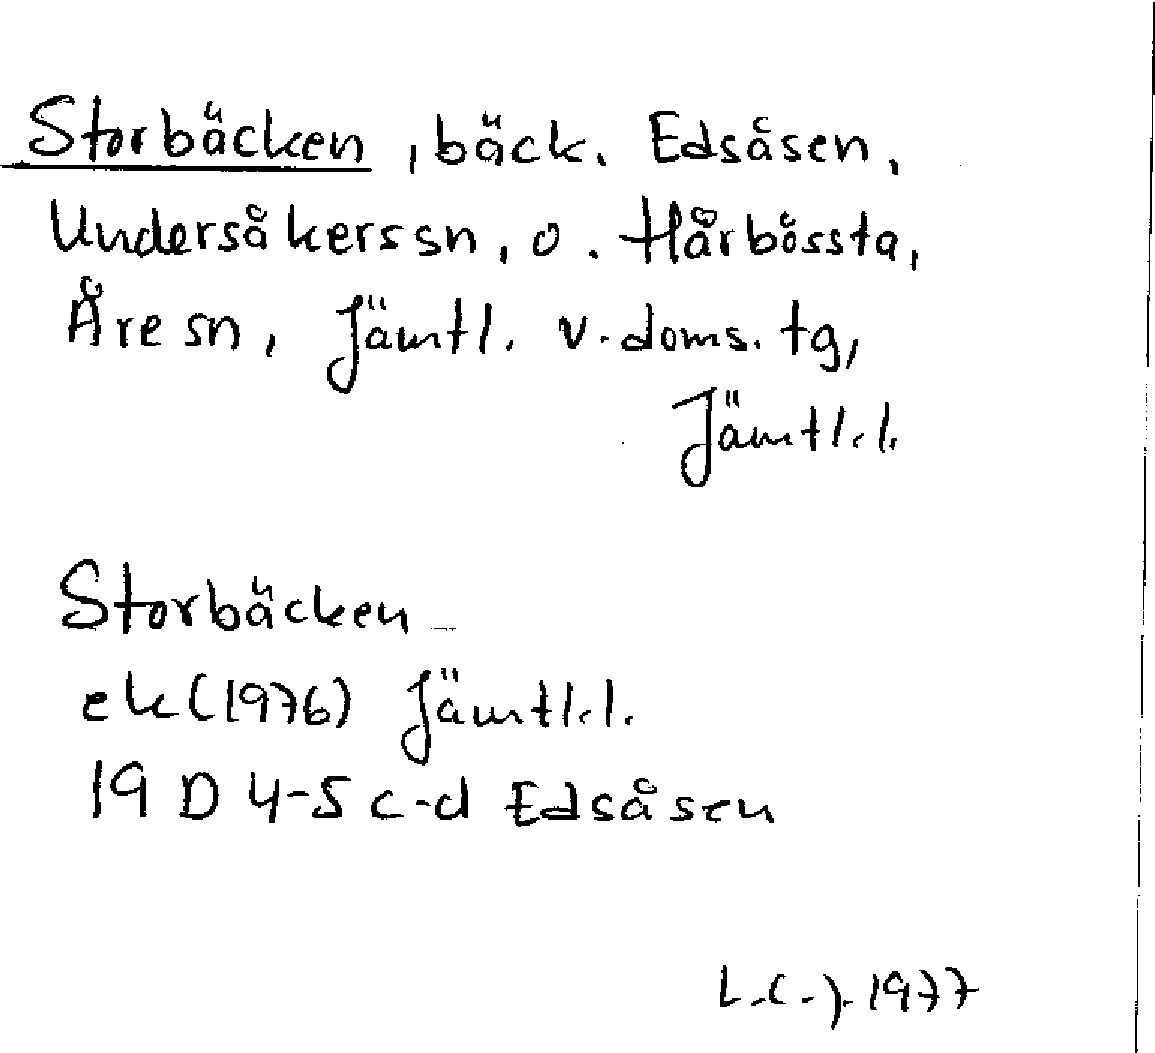 Storbäcken, bäck. Edsåsen,
Undersåkers sn, o. Hårbössta,
Åre sn, Jämtl. v. doms. tg,
Jämtl. l.
Storbäcken
ek (1976) Jämtl. l.
19 D 4-5 c-d Edsåsen
1977